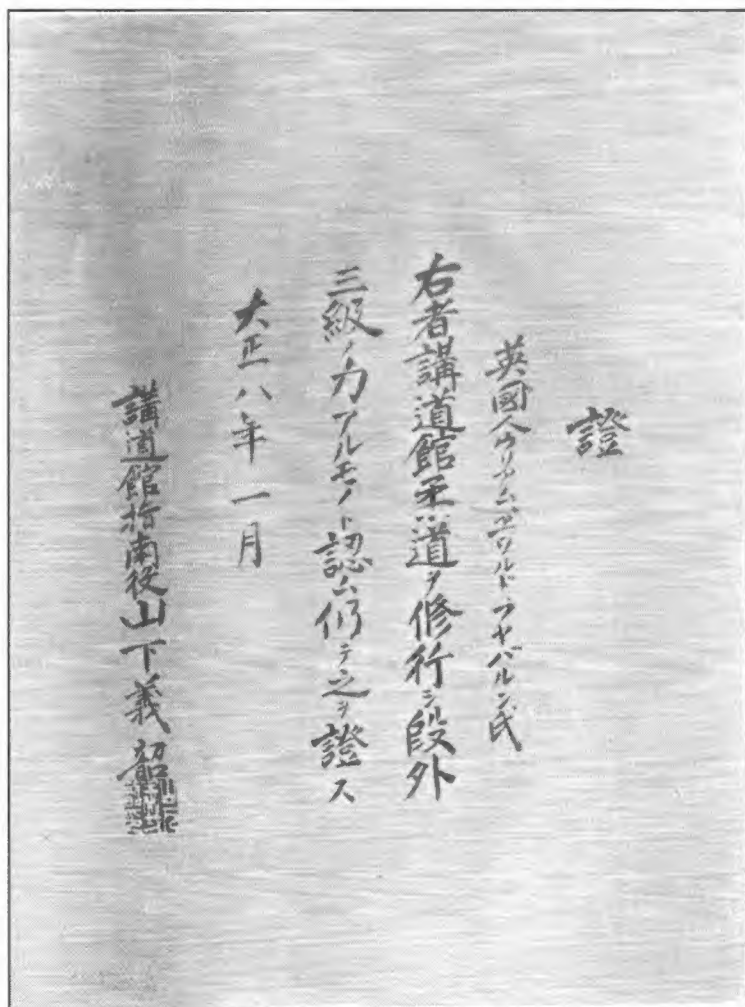 證
英國人ウリアム、エワルド・フヤバルン氏
右者講道館柔道ヲ修行シ段外
三級ノ力アルモノト認ム仍テ之ヲ證ス
大正八年一月
講道館指南役山下義韶